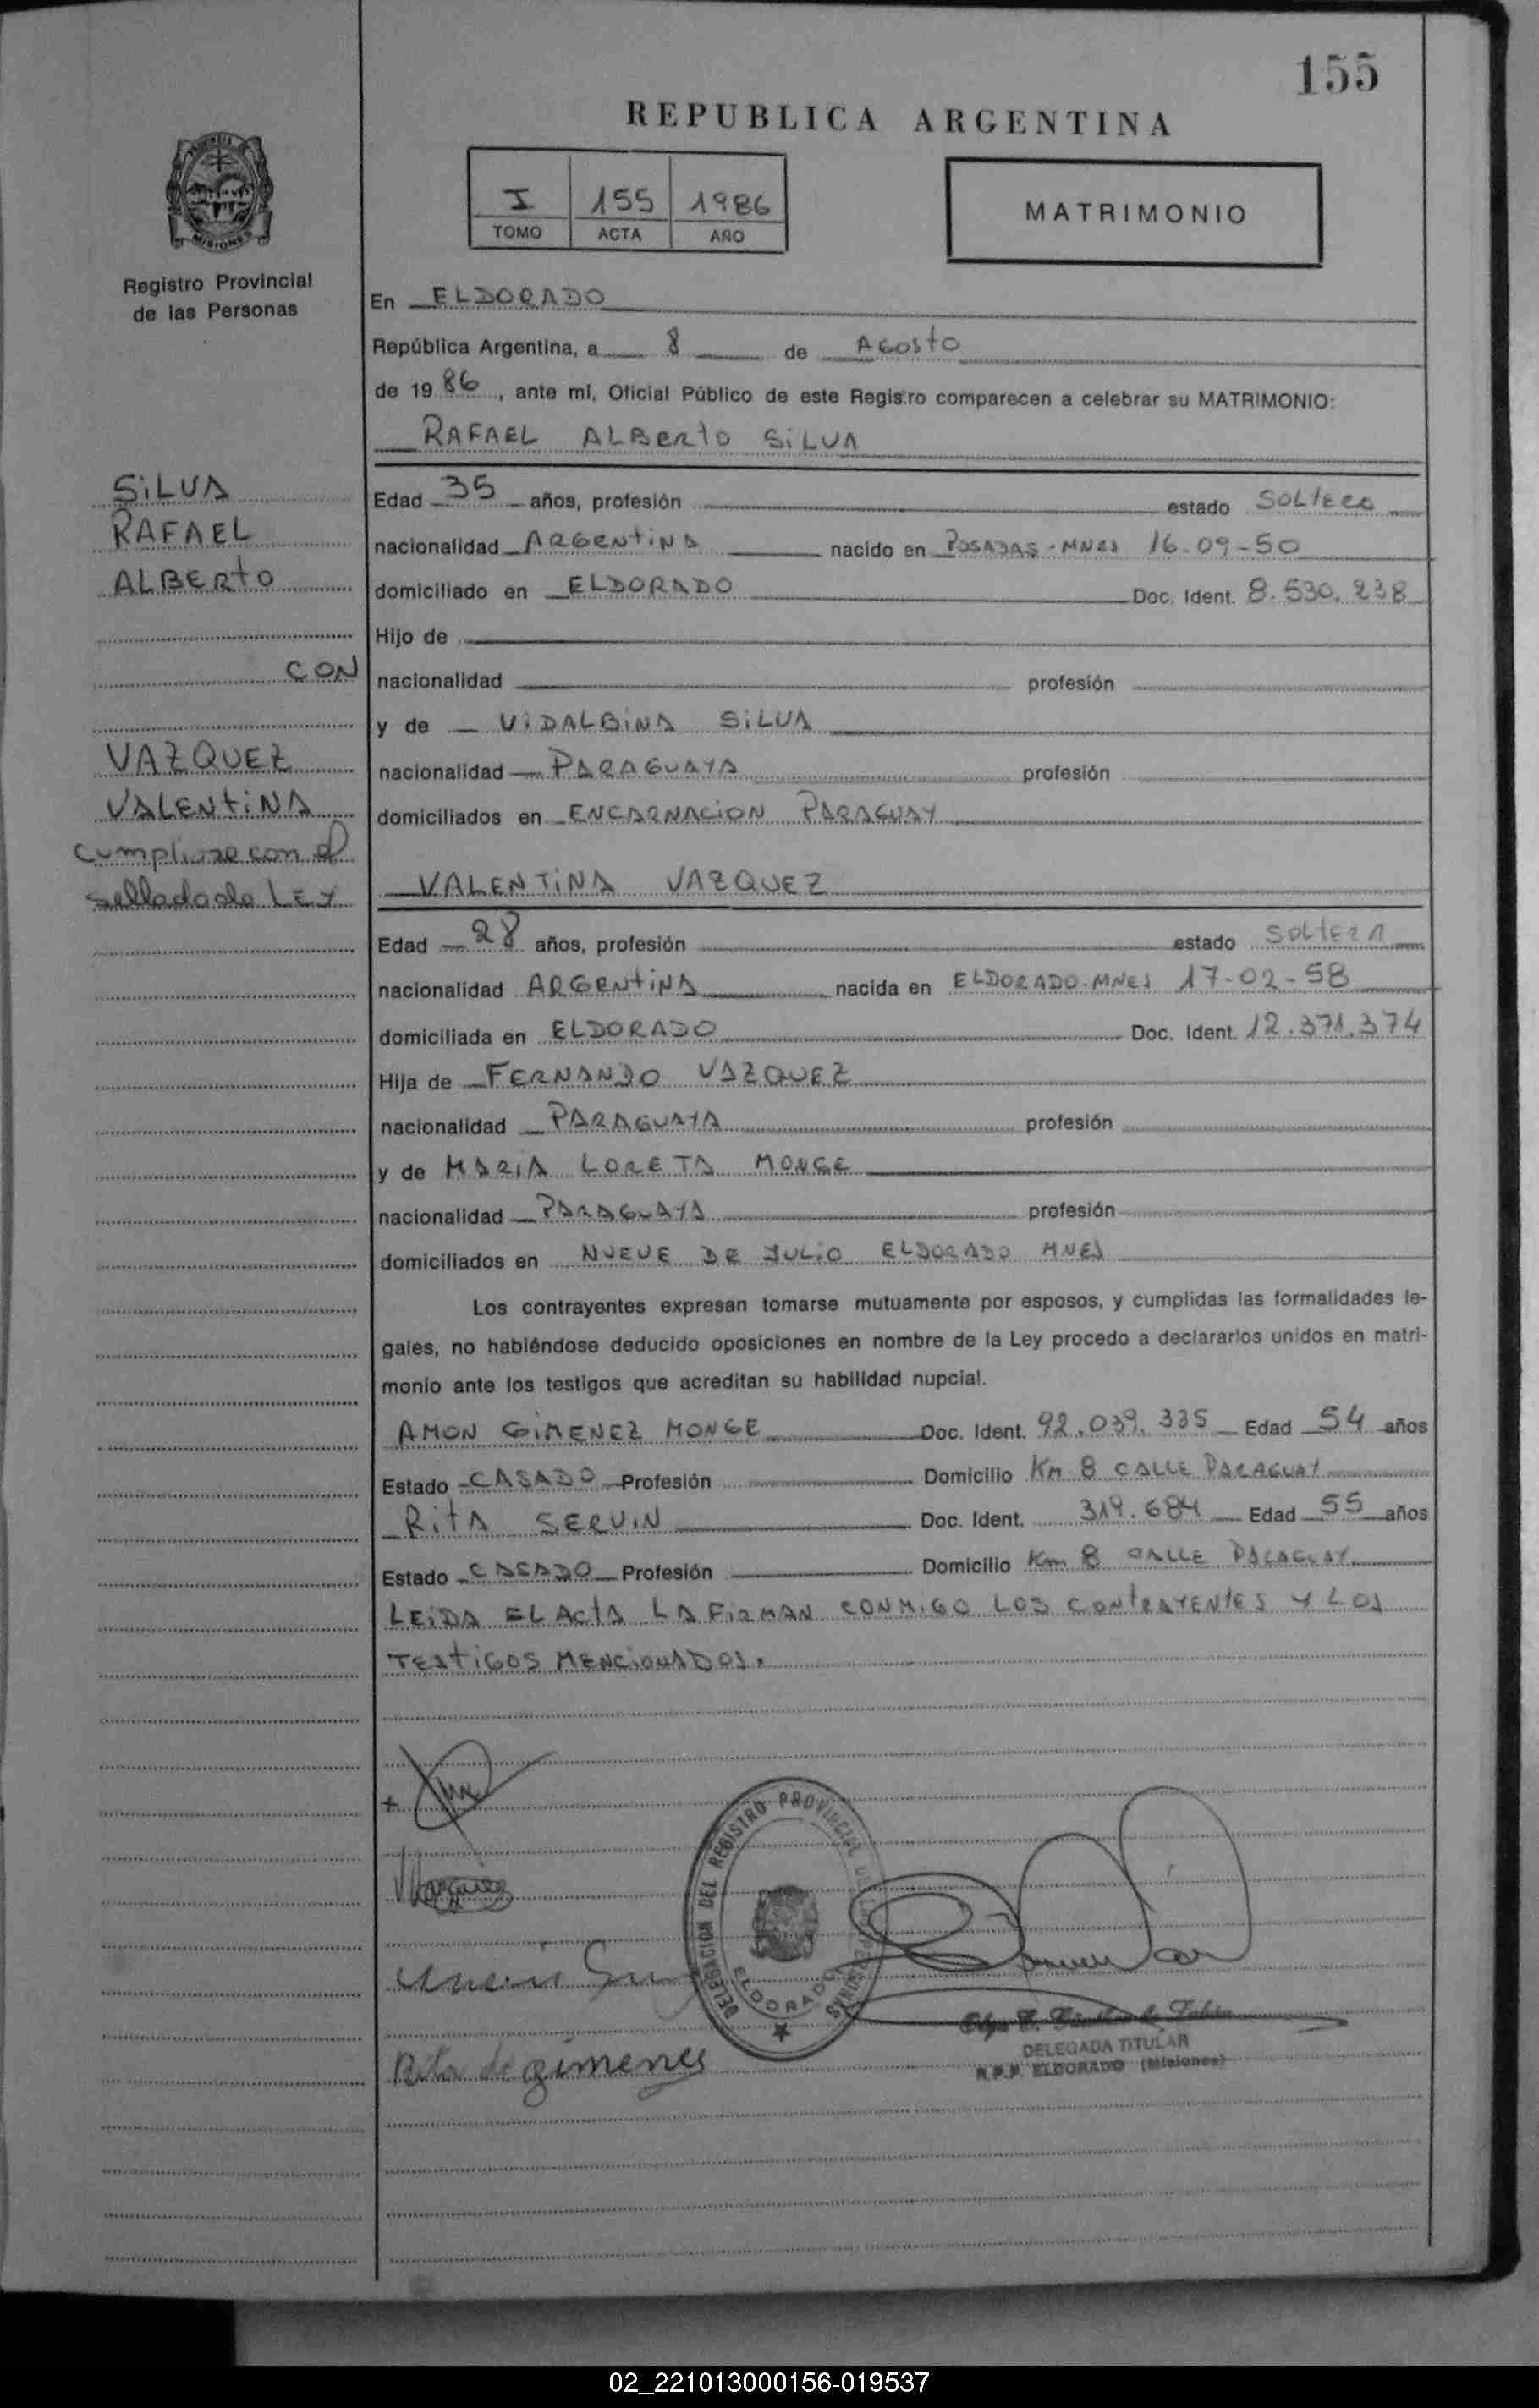 155
REPUBLICA ARGENTINA
I 155 1986
TOMO ACTA AÑO
MATRIMONIO
MISIONES
Registro Provincial
de las Personas
En ELDORADO
República Argentina, a 8 de AGOSTO
de 1986, ante mi, Oficial Público de este Registro comparecen a celebrar su MATRIMONIO:
RAFAEL ALBERTO SILVA
SILVA
RAFAEL
ALBERTO
CON
VAZQUEZ
VALENTINA
Cumpliose con el
sellado de LEY
Edad 35 años, profesión estado SOLTERO
nacionalidad ARGENTINA nacido en POSADAS-MNES 16-09-50
domiciliado en ELDORADO Doc. Ident. 8.530.238
Hijo de
nacionalidad profesión
y de VIDALBINA SILVA
nacionalidad PARAGUAYA profesión
domiciliados en ENCARNACION PARAGUAY
VALENTINA VAZQUEZ
Edad 28 años, profesión estado SOLTERA
nacionalidad ARGENTINA nacida en ELDORADO-MNES 17-02-58
domiciliada en ELDORADO Doc. Ident. 12.371.374
Hija de FERNANDO VAZQUEZ
nacionalidad PARAGUAYA profesión
y de MARIA LORETA MONGE
nacionalidad PARAGUAYA profesión
domiciliados en NUEVE DE JULIO ELDORADO MNES
Los contrayentes expresan tomarse mutuamente por esposos, y cumplidas las formalidades le-
gales, no habiéndose deducido oposiciones en nombre de la Ley procedo a declararlos unidos en matri-
monio ante los testigos que acreditan su habilidad nupcial.
AMON GIMENEZ MONGE Doc. Ident. 92.039.335 Edad 54 años
Estado CASADO Profesión Domicilio Km 8 CALLE PARAGUAY
RITA SERVIN Doc. Ident. 319.684 Edad 55 años
Estado CASADO Profesión Domicilio Km 8 CALLE PARAGUAY
LEIDA EL ACTA LA FIRMAN CONMIGO LOS CONTRAYENTES Y LOS
TESTIGOS MENCIONADOS.
VVazquez
DELEGACION DEL REGISTRO PROVINCIAL DE LAS PERSONAS
ELDORADO
Rita de gimenes
DELEGADA TITULAR
R.P.P. ELDORADO (Misiones)
02_221013000156-019537